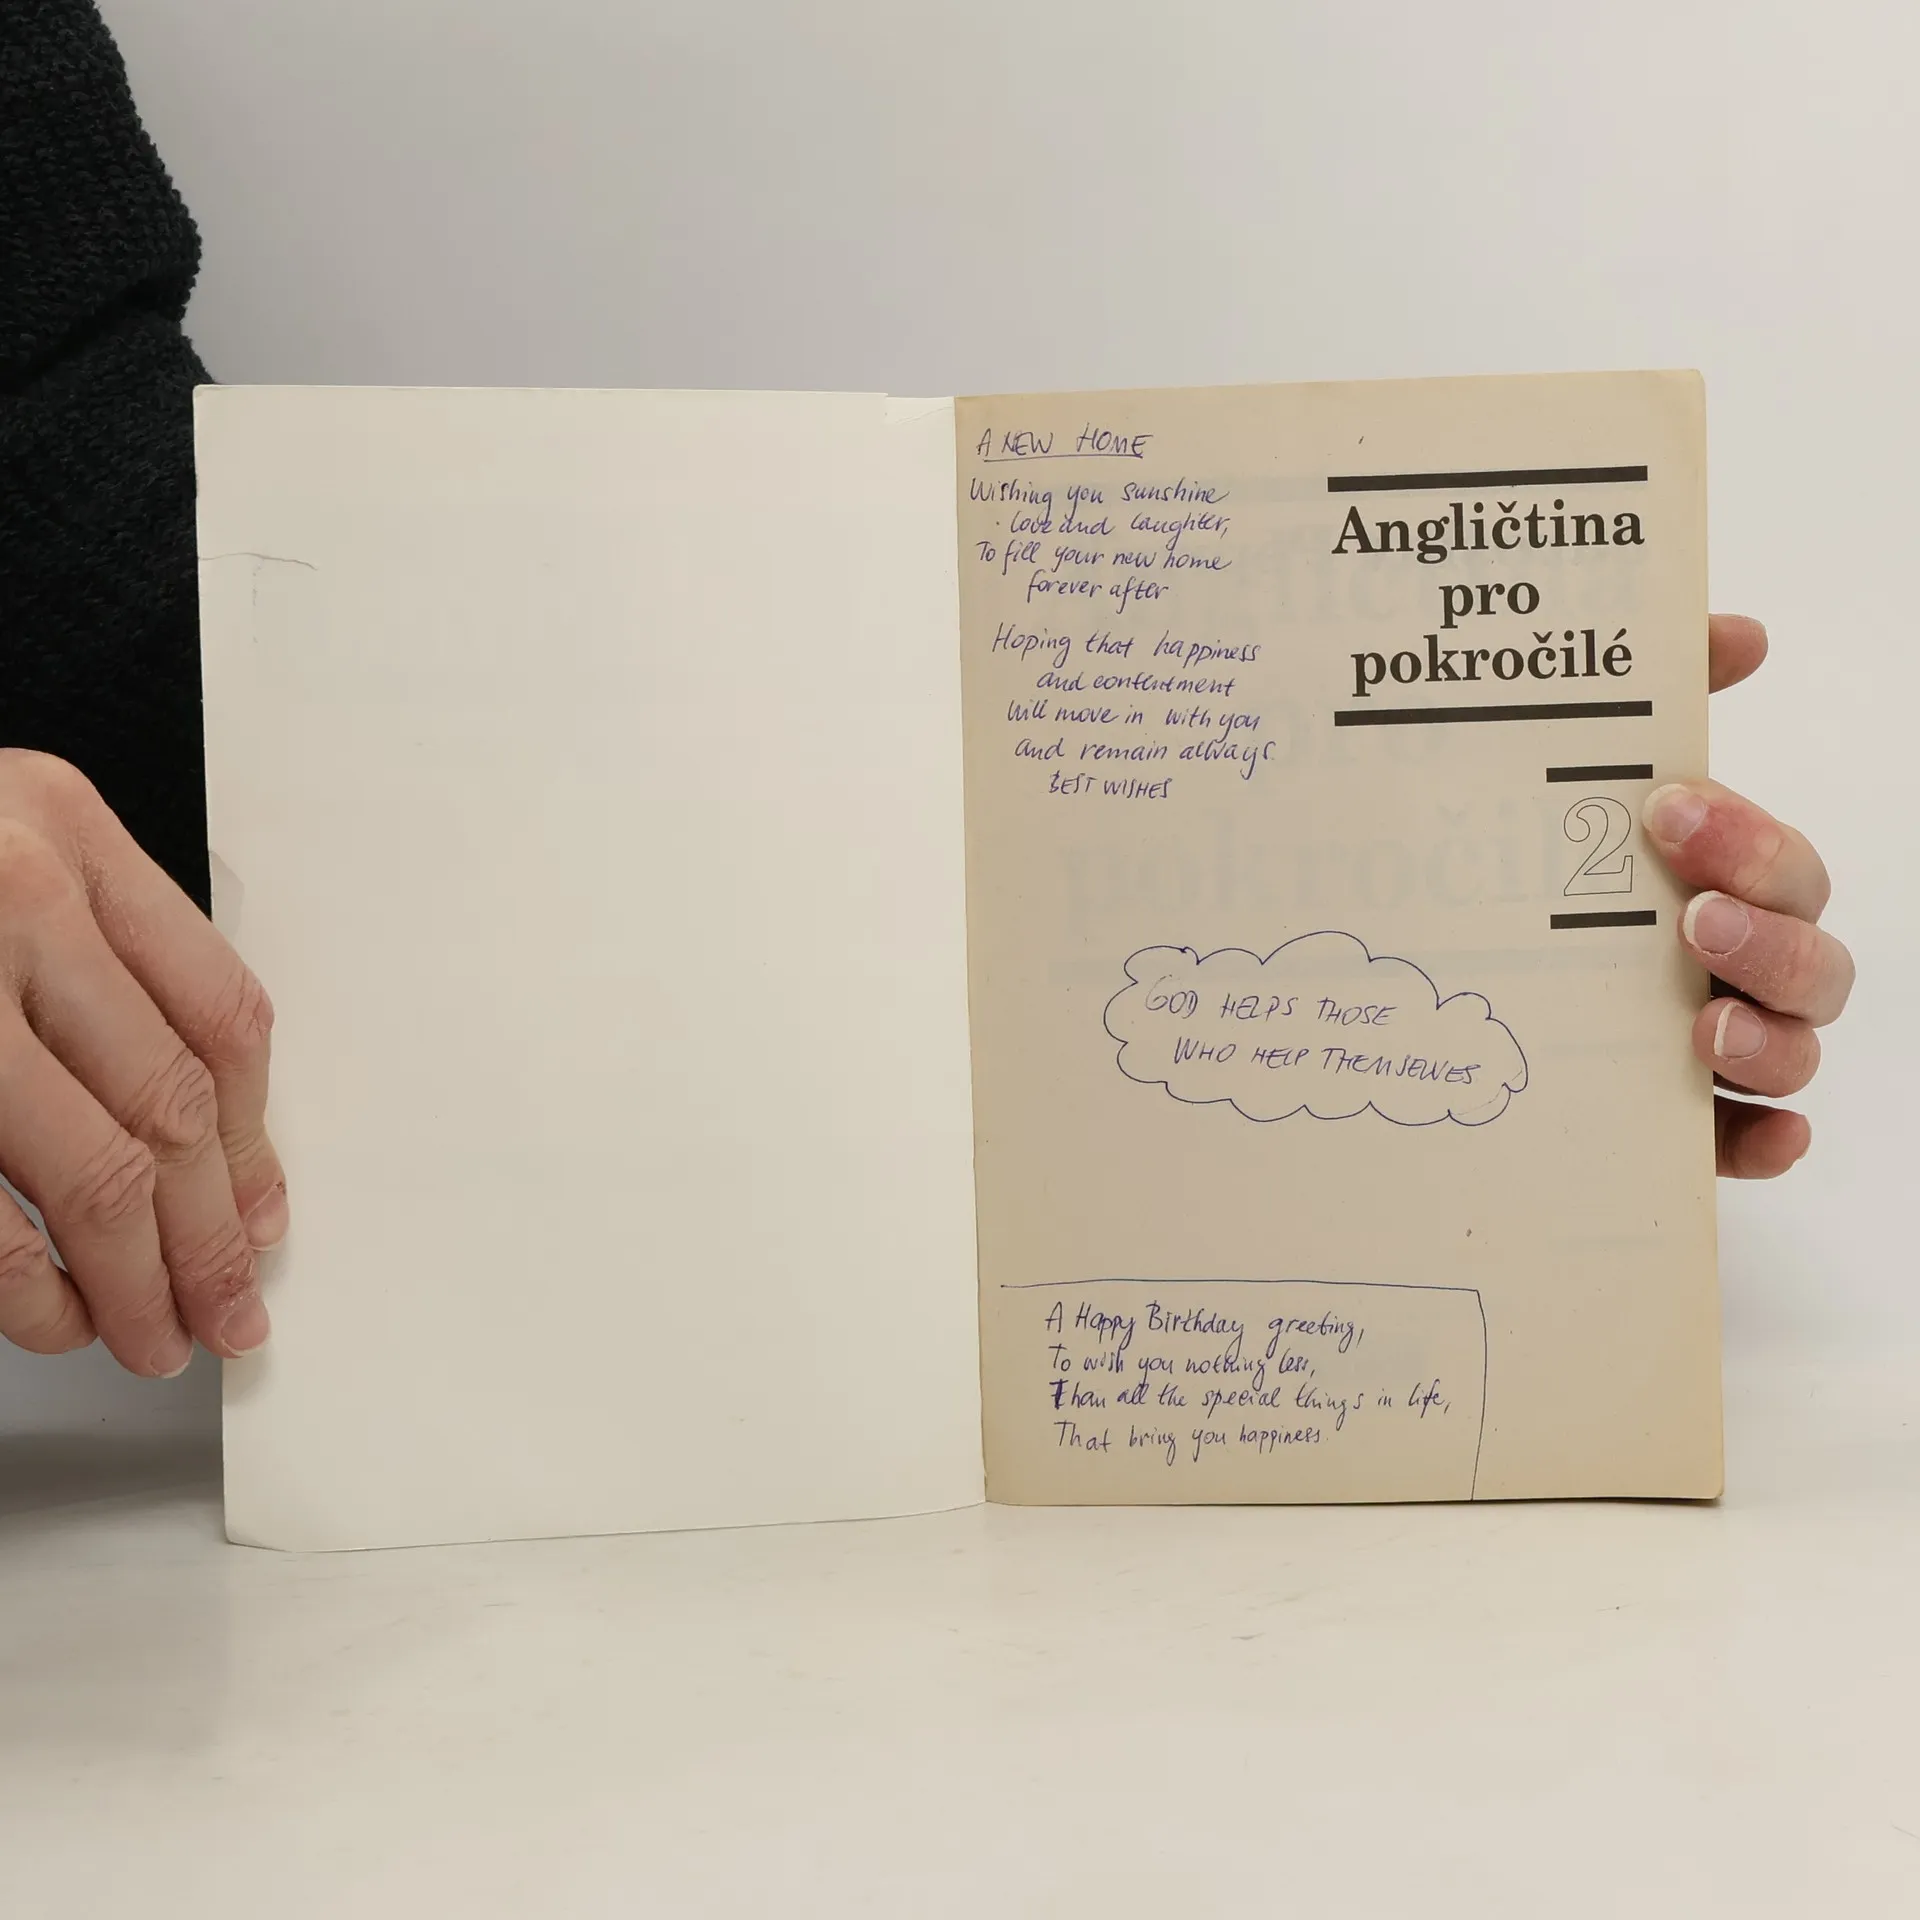 A NEW HOME
Wishing you sunshine
love and laughter,
To fill your new home
forever after
Hoping that happiness
and contentment
Will move in with you
and remain always.
BEST WISHES
Angličtina
pro
pokročilé
2
GOD HELPS THOSE
WHO HELP THEMSELVES
A Happy Birthday greeting,
To wish you nothing less,
Than all the special things in life,
That bring you happiness.